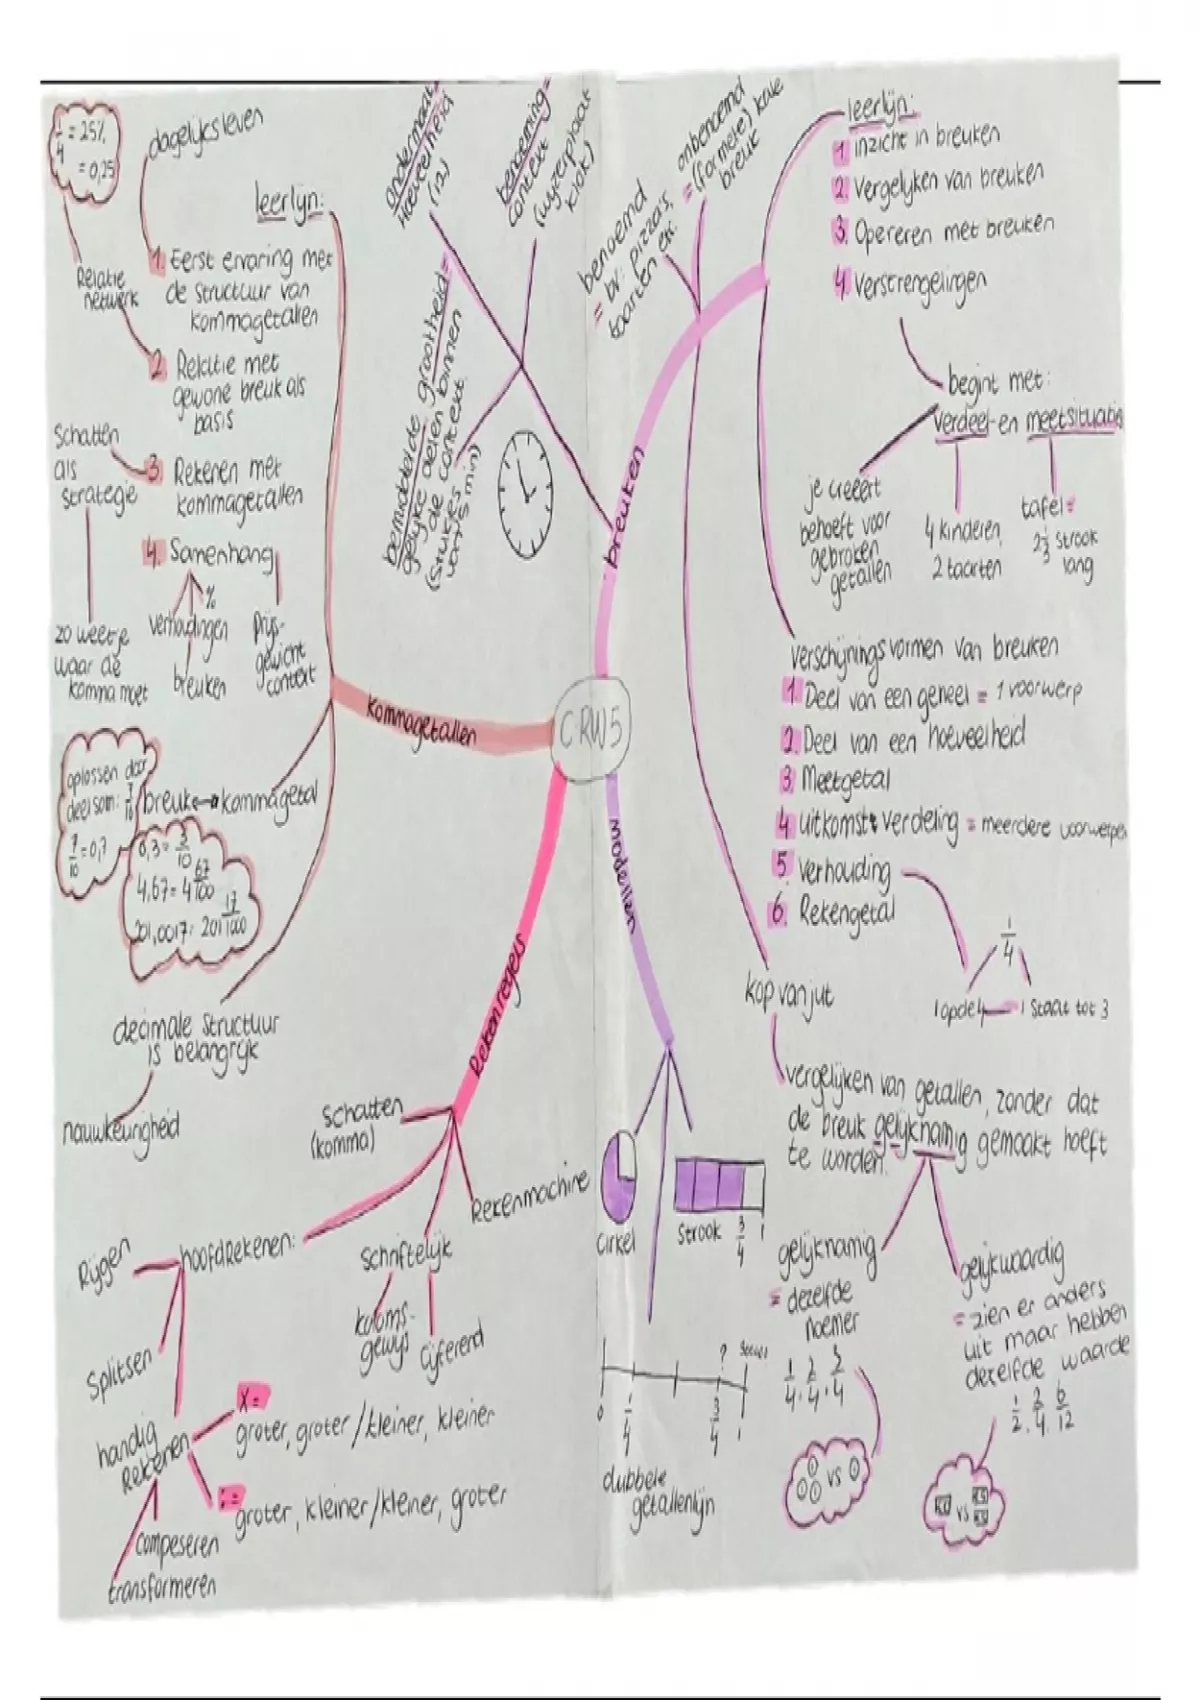 CRW5
kommagetallen
leerlijn:
dagelijks leven
1. Eerst ervaring met
de structuur van
kommagetallen
1/4 = 25%
= 0,25
Relatie
netwerk
2. Relatie met
gewone breuk als
basis
Schatten
als
strategie
3. Rekenen met
kommagetallen
zo weet je
waar de
komma moet
4. Samenhang
%
verhoudingen
breuken
prijs-
gewicht
context
breuk kommagetal
oplossen door
deelsom: 7/10
7/10 = 0,7
0,3 = 3/10
4,67 = 4 67/100
201,0017 = 201 17/1000
decimale structuur
is belangrijk
nauwkeurigheid
breuken
ondermaat=
Hoeveelheid
(12)
benoeming=
context
(wijzerplaat
klok)
bemiddelde grootheid=
gelijke delen binnen
de context.
(stukjes
van 5 min)
benoemd
= bv: pizza's,
taarten etc.
onbenoemd
= (formele) kale
breuk
leerlijn:
1. inzicht in breuken
2. Vergelijken van breuken
3. Opereren met breuken
4. Verstrengelingen
begint met:
verdeel- en meetsituatis
je creëert
behoeft voor
gebroken
getallen
4 kinderen,
2 taarten
tafel=
2 1/3 strook
lang
verschijningsvormen van breuken
1. Deel van een geheel = 1 voorwerp
2. Deel van een hoeveelheid
3. Meetgetal
4 uitkomst verdeling = meerdere voorwerpen
5. Verhouding
6. Rekengetal
1/4
1 op de 4
1 staat tot 3
kop van jut
vergelijken van getallen, zonder dat
de breuk gelijknamig gemaakt hoeft
te worden.
gelijknamig
= dezelfde
noemer
1/4, 2/4, 3/4
vs
gelijkwaardig
= zien er anders
uit maar hebben
dezelfde waarde
1/2, 2/4, 6/12
vs
modellen
cirkel
strook 3/4 1
? 
0 1/4 3/4 1
dubbele
getallenlijn
Rekenregels
schatten
(komma)
Rekenmachine
schriftelijk
koloms-
gewijs
cijferend
hoofdRekenen:
Rijgen
Splitsen
handig
Rekenen
x =
groter, groter / kleiner, kleiner
: =
groter, kleiner / kleiner, groter
compeseren
transformeren